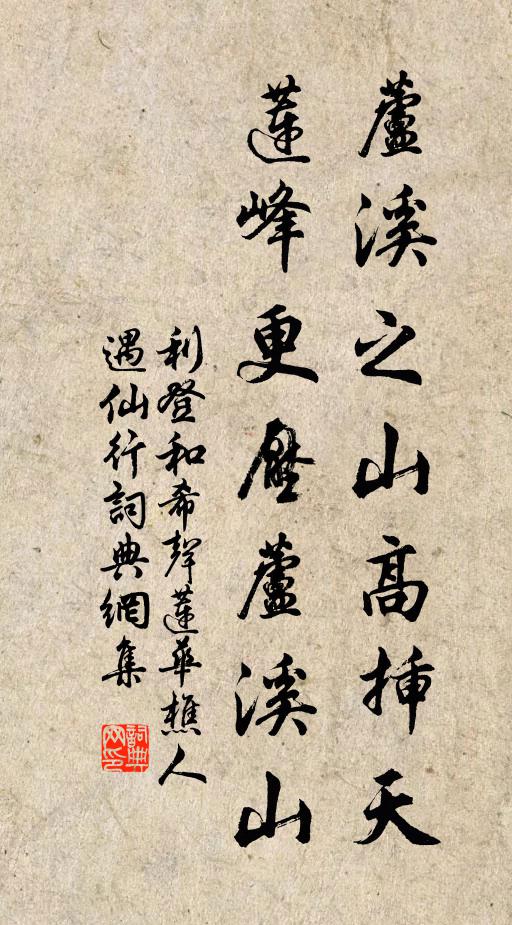 蘆溪之山高揷天
蓮峰更壓蘆溪山
利登和希聲蓮華樵人
遇仙行詞典網集
詞典网印